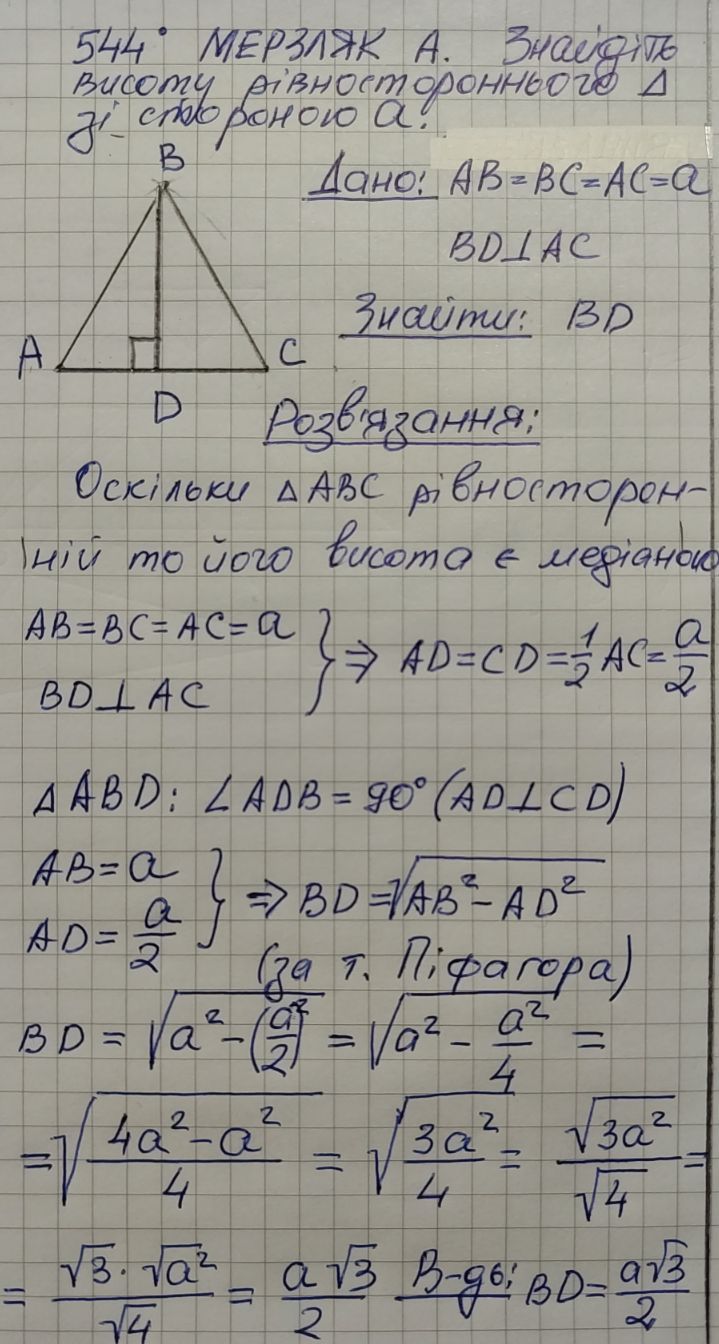 544° МЕРЗЛЯК А. Знайдіть
висоту рівностороннього Δ
зі стороною a.
B
Дано: AB=BC=AC=a
BD⊥AC
Знайти: BD
A
C
D
Розв'язання:
Оскільки ΔABC рівносторон-
ній то його висота є медіаною
AB=BC=AC=a
BD⊥AC
} ⇒ AD=CD=1/2 AC=a/2
ΔABD: ∠ADB=90° (AD⊥CD)
AB=a
AD=a/2
} ⇒ BD=√(AB²-AD²)
(за т. Піфагора)
BD = √(a²-(a/2)²) = √(a² - a²/4) =
=√((4a²-a²)/4) = √(3a²/4) = √(3a²)/√4 =
= (√3·√a²)/√4 = a√3/2 В-дь: BD=a√3/2